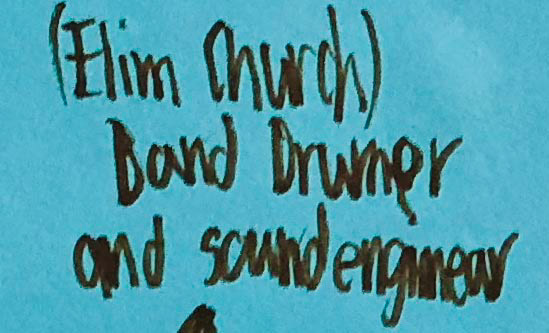 (Elim Church)
Band Drumer
and soundenginear